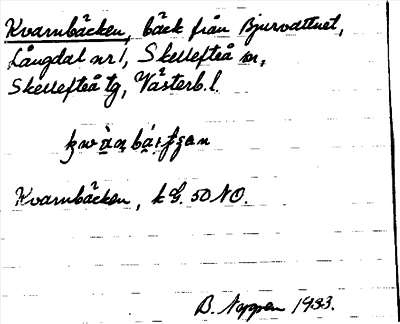 Kvarnbäcken, bäck från Bjurvattnet,
Långdal nr 1, Skellefteå sn,
Skellefteå tg, Västerb. l.
Kvarnbäcken, k G. 50 NO.
1933.